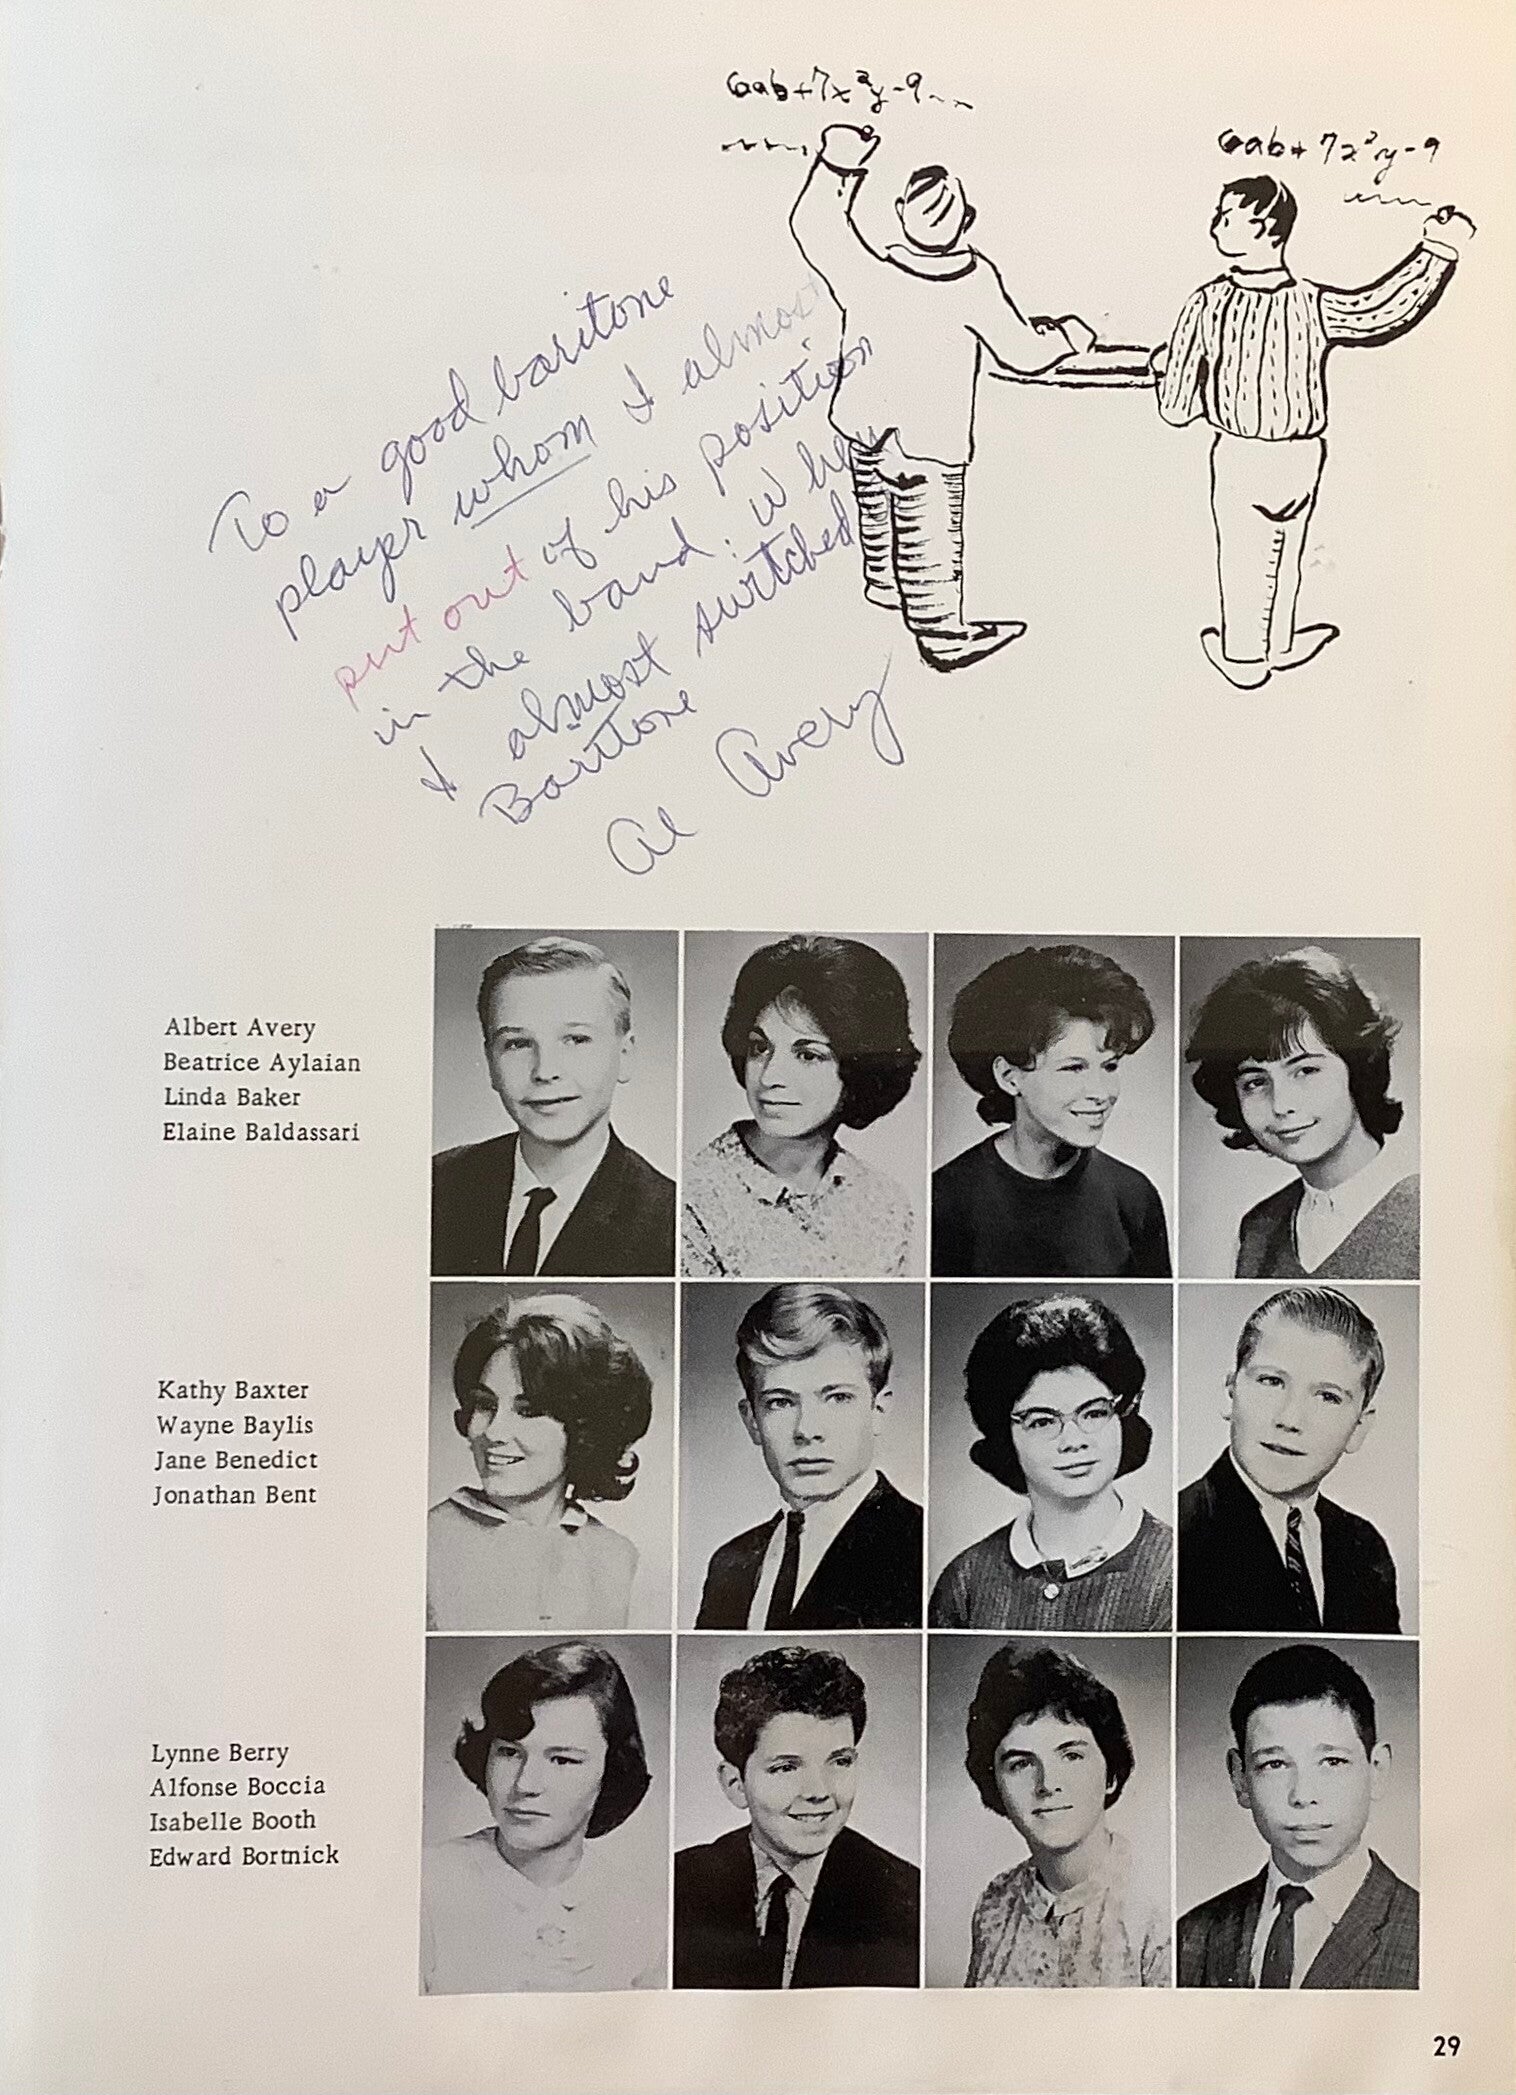 6ab+7x²y-9
6ab+7x²y-9
To a good baritone
player whom I almost
put out of his position
in the band: when
I almost switched
Baritone
Al Avery
Albert Avery
Beatrice Aylaian
Linda Baker
Elaine Baldassari
Kathy Baxter
Wayne Baylis
Jane Benedict
Jonathan Bent
Lynne Berry
Alfonse Boccia
Isabelle Booth
Edward Bortnick
29